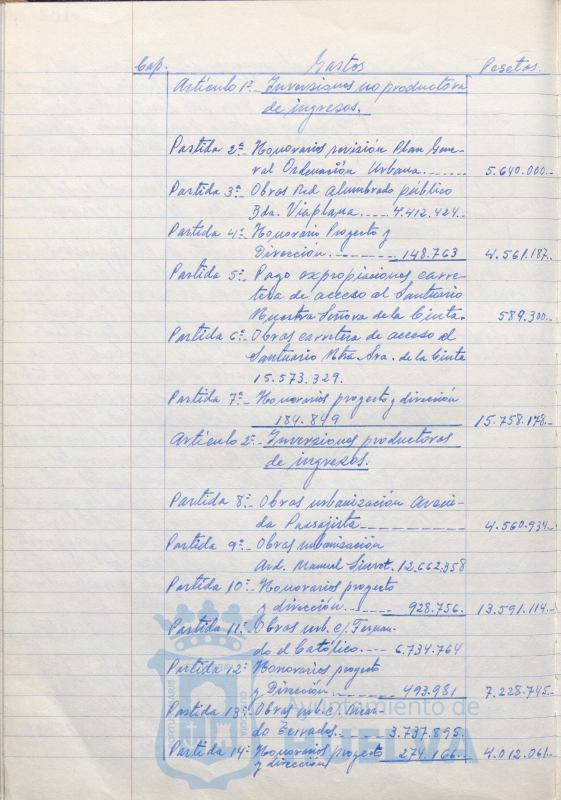 Cap. Gastos Pesetas.
Artículo 1º Inversiones no productora
de ingresos.
Partida 2ª Honorarios revisión Plan Gene-
ral Ordenación Urbana 5.640.000.-
Partida 3ª Obras Red alumbrado público
Bda. Viaplana 4.412.424.-
Partida 4ª Honorario Proyecto y
Dirección 148.763 4.561.187.-
Partida 5ª Pago expropiaciones carre-
tera de acceso al Santuario
Nuestra Señora de la Cinta 589.300.-
Partida 6ª Obras carretera de acceso al
Santuario Ntra. Sra. de la Cinta
15.573.329.
Partida 7ª Honorarios proyecto y dirección
184.849 15.758.178.-
Artículo 2º Inversiones productoras
de ingresos.
Partida 8ª Obras urbanización Aveni-
da Paisajista 4.560.934.-
Partida 9ª Obras urbanización
Avd. Manuel Siurot. 12.662.358
Partida 10ª Honorarios proyecto
y dirección 928.756. 13.591.114.-
Partida 11ª Obras urb. c/. Fernan-
do el Católico 6.734.764
Partida 12ª Honorarios proyecto
y Dirección 493.981 7.228.745.-
Partida 13ª Obras urb. c/.
do 3.737.895.
Partida 14ª Honorarios proyecto 274.166. 4.012.061.-
y dirección
Ayuntamiento de
HUELVA